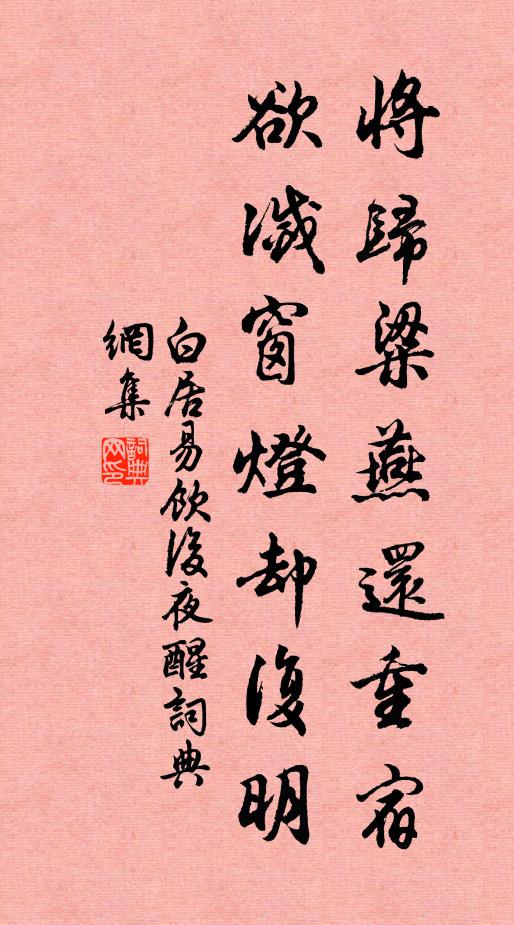 將歸梁燕還重宿
欲滅窗燈却復明
白居易飲後夜醒詞典
網集
詞典网印